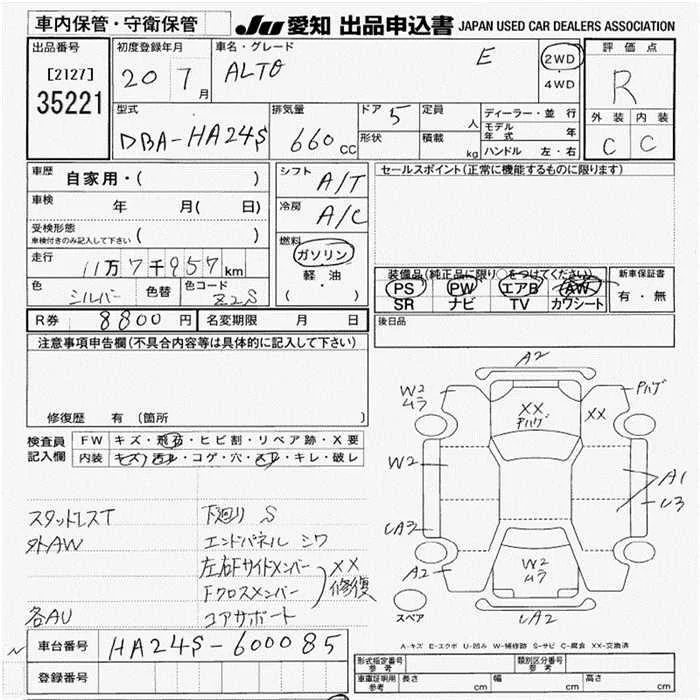 車内保管・守衛保管
JU 愛知 出品申込書 JAPAN USED CAR DEALERS ASSOCIATION
出品番号
[2127]
35221
初度登録年月
20 7月
車名・グレード
ALTO E
2WD
・
4WD
評価点
R
外装 内装
C C
型式
DBA-HA24S
排気量
660cc
ドア 5
形状
定員 人
積載 kg
ディーラー・並行
モデル年式 年
ハンドル 左・右
車歴 自家用・( )
車検 年 月( 日)
受検形態
車検付きのみ記入して下さい ( )
走行 11万7千957km
色 シルバー 色替 色コード Z2S
シフト A/T
冷房 A/C
燃料
ガソリン
軽・油
( ・ )
セールスポイント(正常に機能するものに限ります)
装備品(純正品に限り○をつけてください)
PS PW エアB AW
SR ナビ TV カワシート
新車保証書
有・無
R券 8800円 名変期限 月 日
後日品
注意事項申告欄(不具合内容等は具体的に記入して下さい)
修復歴 有 (箇所
検査員
記入欄
FW キズ・飛石・ヒビ割・リペア跡・X要
内装 キズ・汚れ・コゲ・穴・スレ・キレ・破レ
スタットレスT
外AW
各AU
下廻り S
エンドパネル シワ
左右Fサイドメンバー
Fクロスメンバー
コアサポート
XX
修復
A2
W2
ムラ
XX
Pハゲ
XX
Pハゲ
W2
UA3
A2
W2
ムラ
A1
U3
UA2
スペア
A-キズ E-エクボ U-凹み W-補修跡 S-サビ C-腐食 XX-交換済
車台番号 HA24S-600085
登録番号
型式指定番号
参考
類別区分番号
参考
車庫証明用
参考
長さ cm 幅 cm 高さ cm